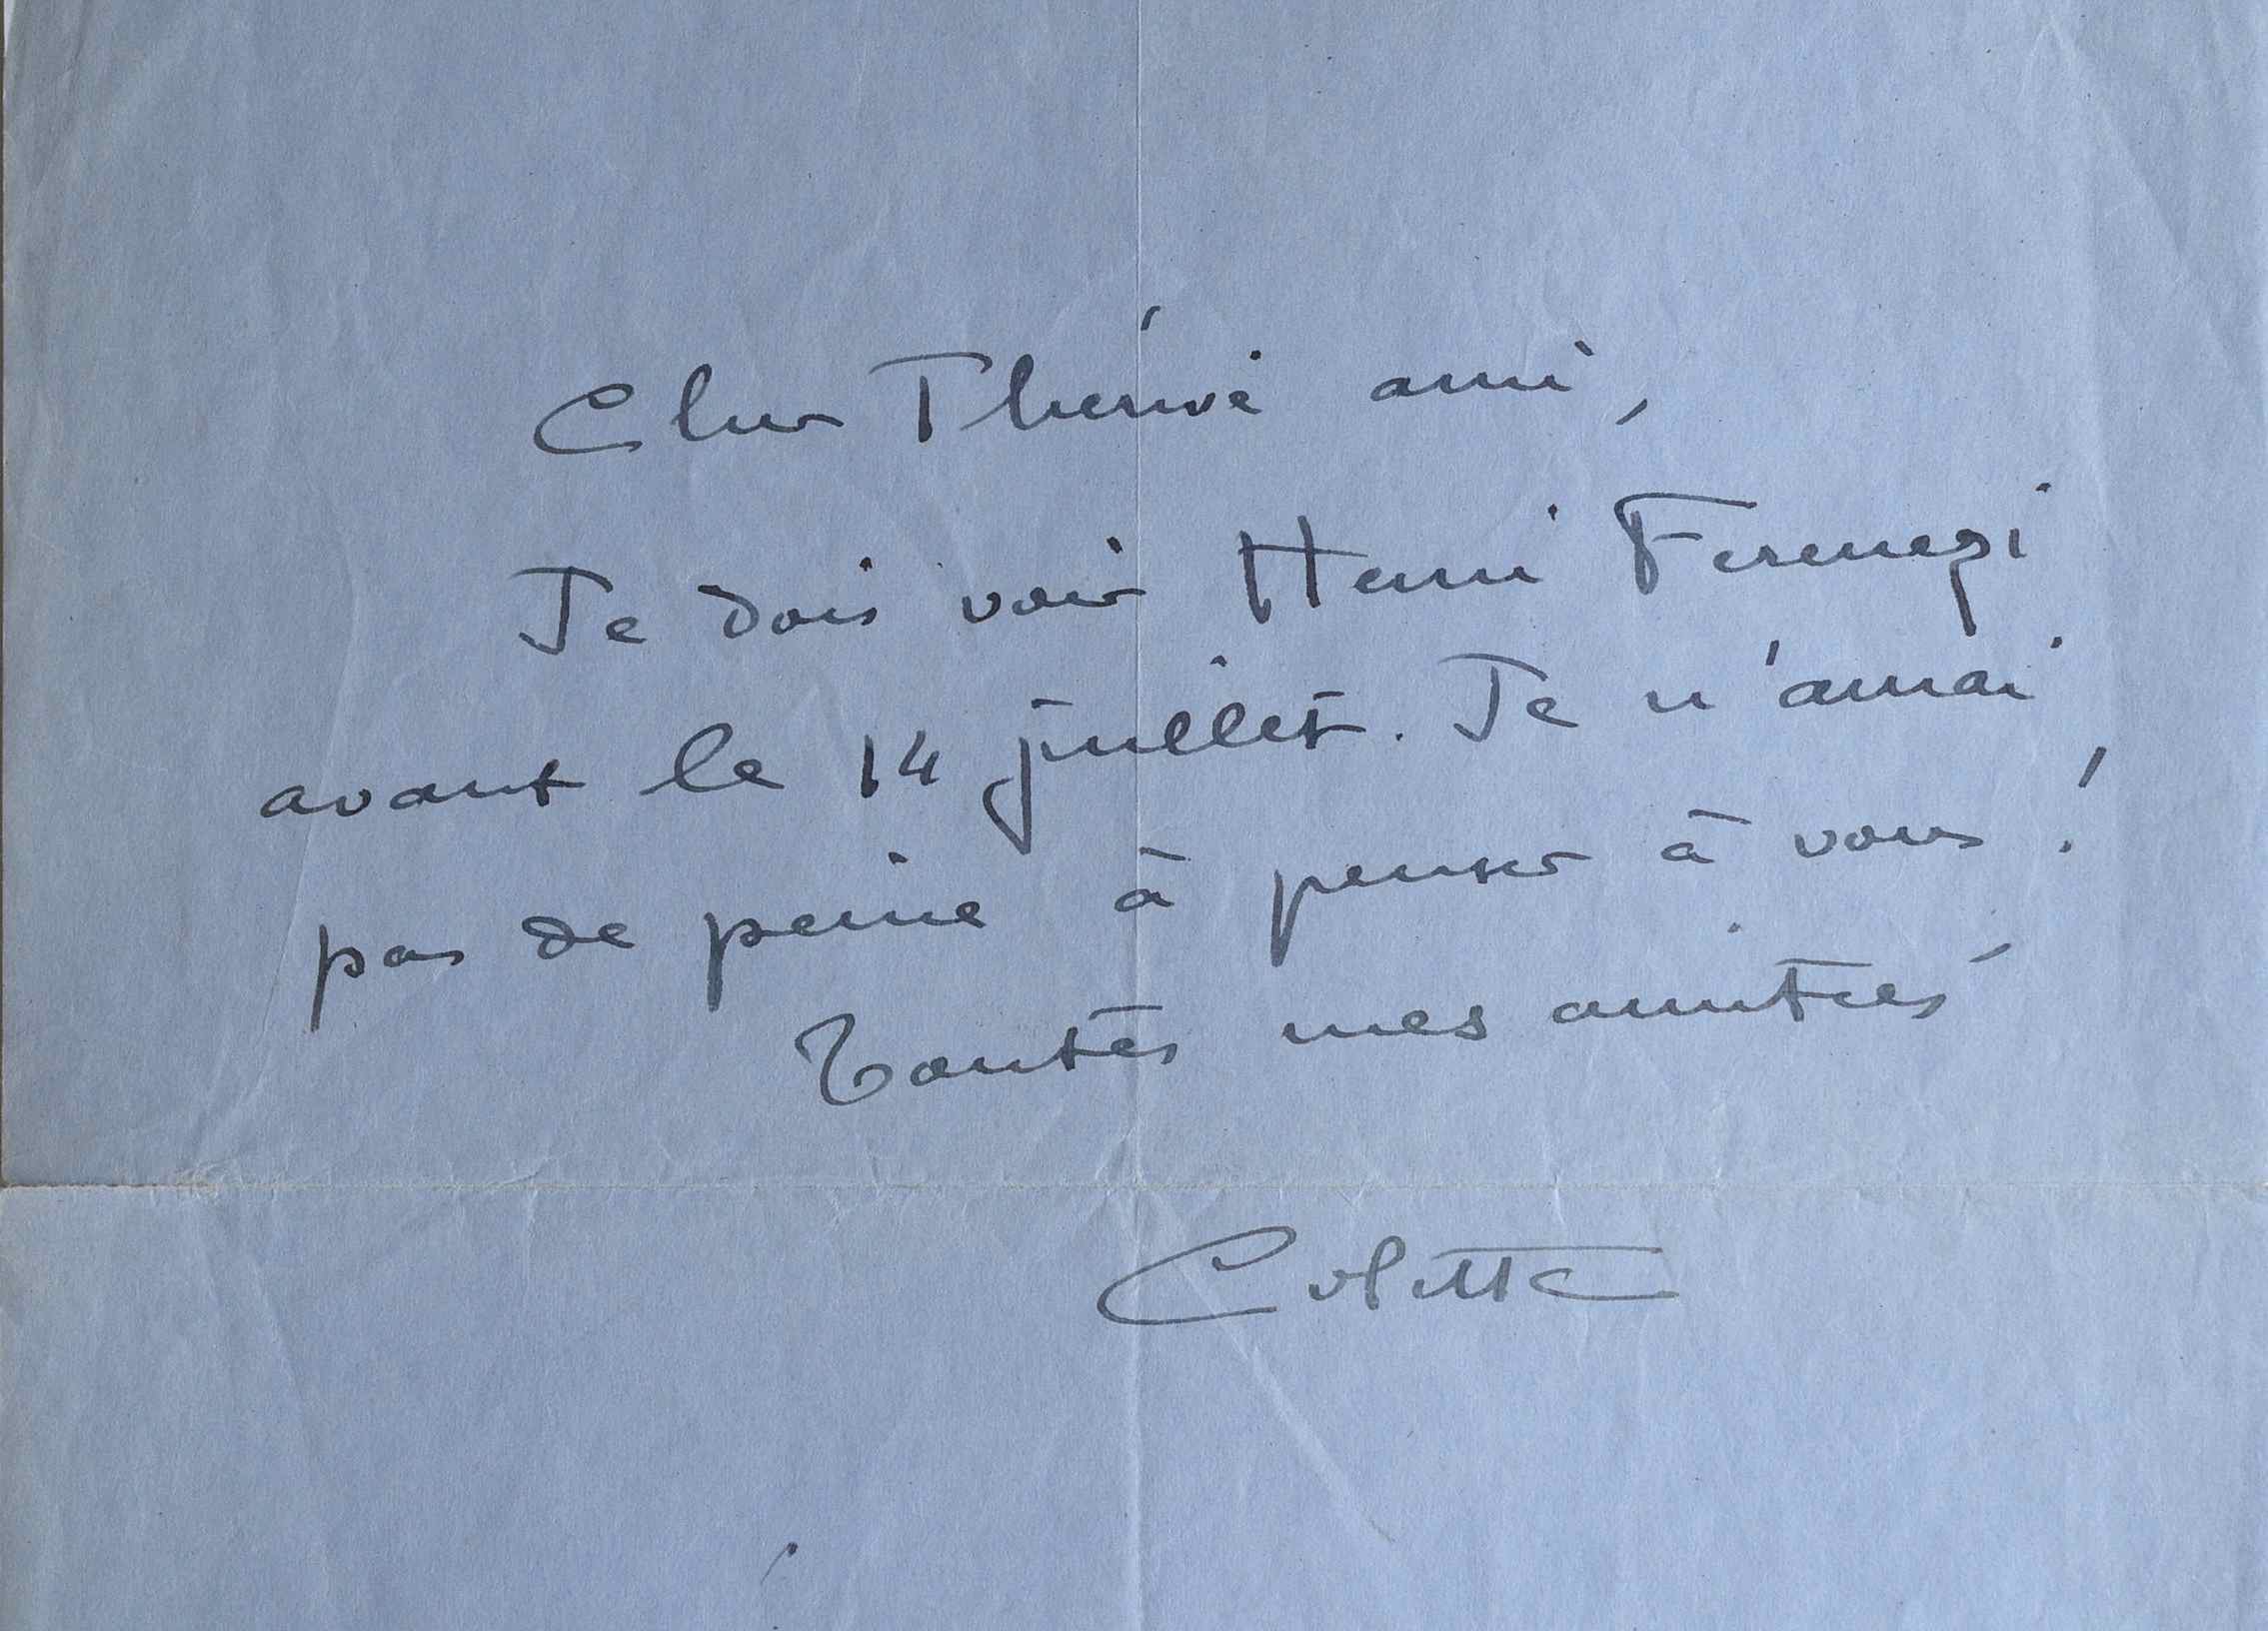 Cher Thérive ami,
Je dois voir Henri Ferenczi
avant le 14 juillet. Je n'aurai
pas de peine à penser à vous !
Toutes mes amitiés
Colette